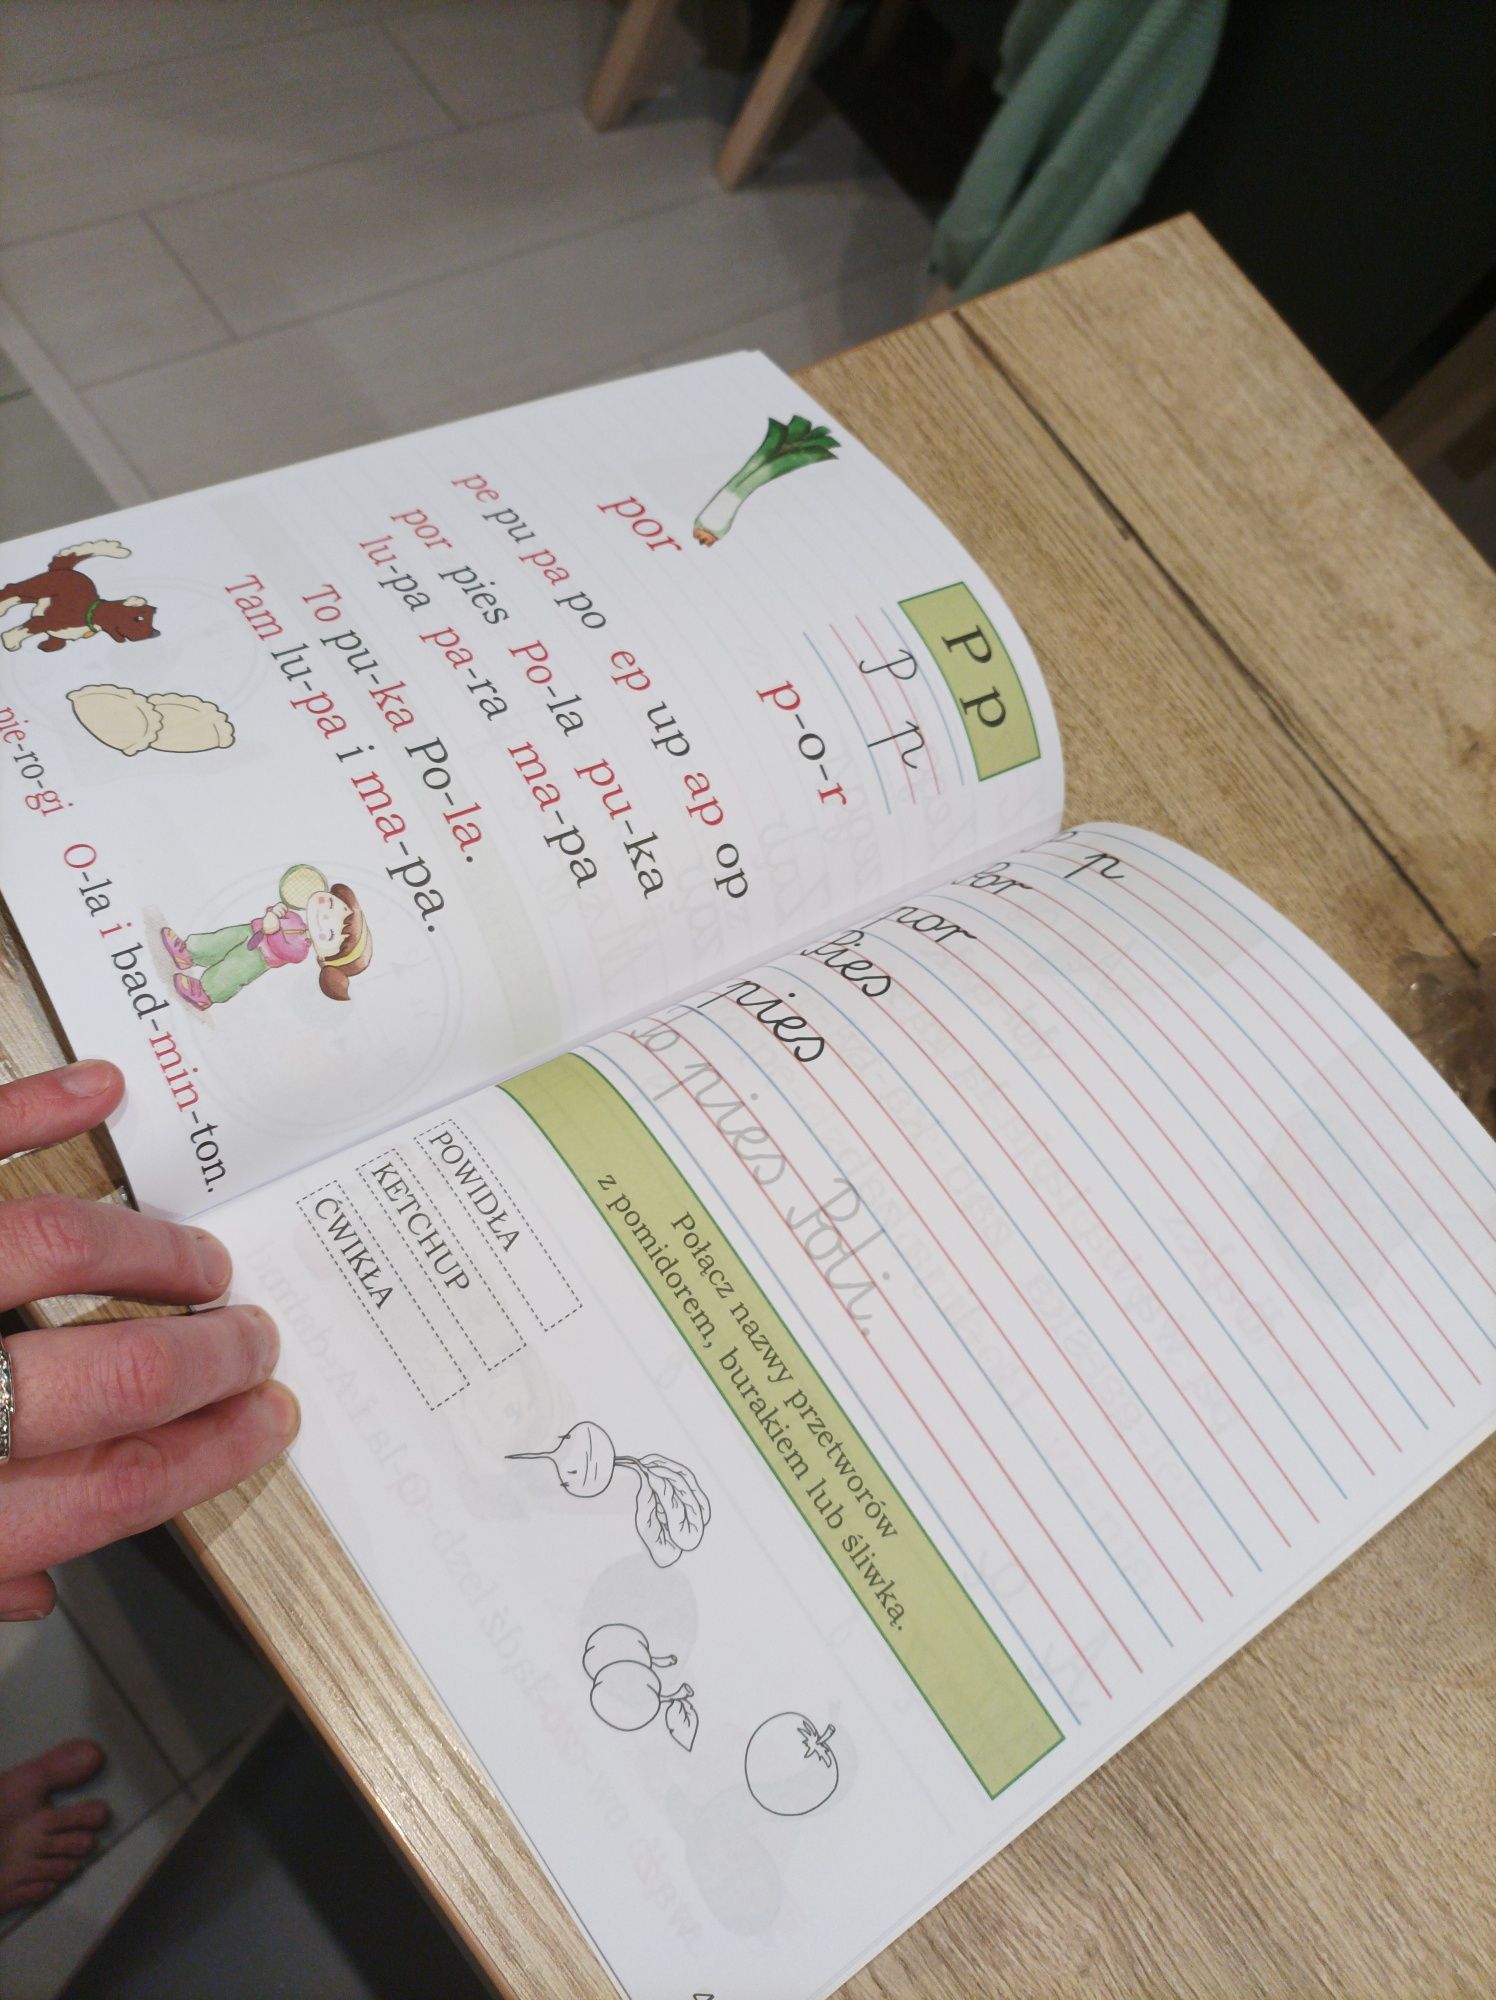 P p
P p
p-o-r
por
pe pu pa po ep up ap op
por pies Po-la pu-ka
lu-pa pa-ra ma-pa
To pu-ka Po-la.
Tam lu-pa i ma-pa.
pie-ro-gi
O-la i bad-min-ton.
p
Por
por
Pies
pies
To pies Poli.
Połącz nazwy przetworów
z pomidorem, burakiem lub śliwką.
POWIDŁA
KETCHUP
ĆWIKŁA